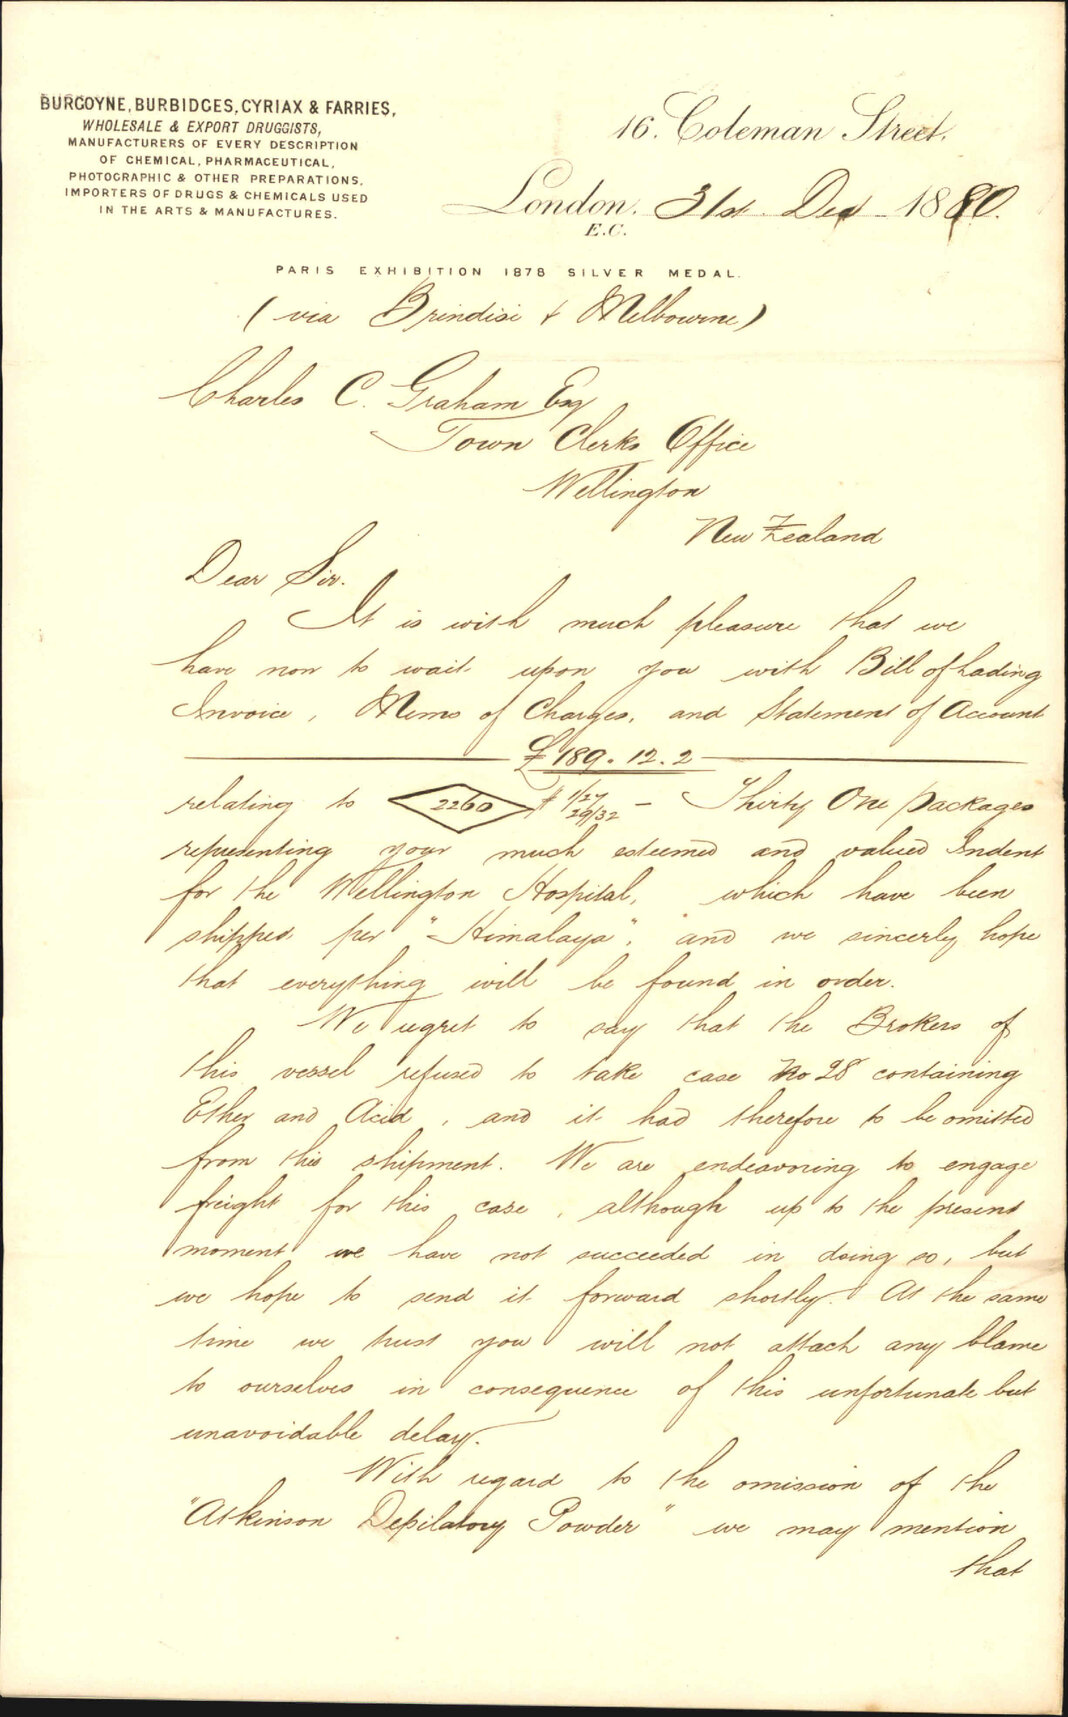 BURGOYNE, BURBIDGES, CYRIAX & FARRIES,
WHOLESALE & EXPORT DRUGGISTS,
MANUFACTURERS OF EVERY DESCRIPTION
OF CHEMICAL, PHARMACEUTICAL,
PHOTOGRAPHIC & OTHER PREPARATIONS,
IMPORTERS OF DRUGS & CHEMICALS USED
IN THE ARTS & MANUFACTURES.
16. Coleman Street,
London, 31st Dec 1880.
E.C.
PARIS EXHIBITION 1878 SILVER MEDAL.
(via Brindisi & Melbourne)
Charles C. Graham Esq
Town Clerks Office
Wellington
New Zealand
Dear Sir.
It is with much pleasure that we
have now to wait upon you with Bill of Lading
Invoice, Memo of Charges, and Statement of Account
£189.12.2
relating to 2260 # 1/27 29/32 — Thirty One packages
representing your much esteemed and valued Indent
for the Wellington Hospital, which have been
shipped per "Himalaya", and we sincerely hope
that everything will be found in order.
We regret to say that the Brokers of
this vessel refused to take case No 28 containing
Ether and Acid, and it had therefore to be omitted
from this shipment. We are endeavoring to engage
freight for this case, although up to the present
moment we have not succeeded in doing so, but
we hope to send it forward shortly. At the same
time we trust you will not attach any blame
to ourselves in consequence of this unfortunate but
unavoidable delay.
With regard to the omission of the
"Atkinson Depilatory Powder" we may mention
that